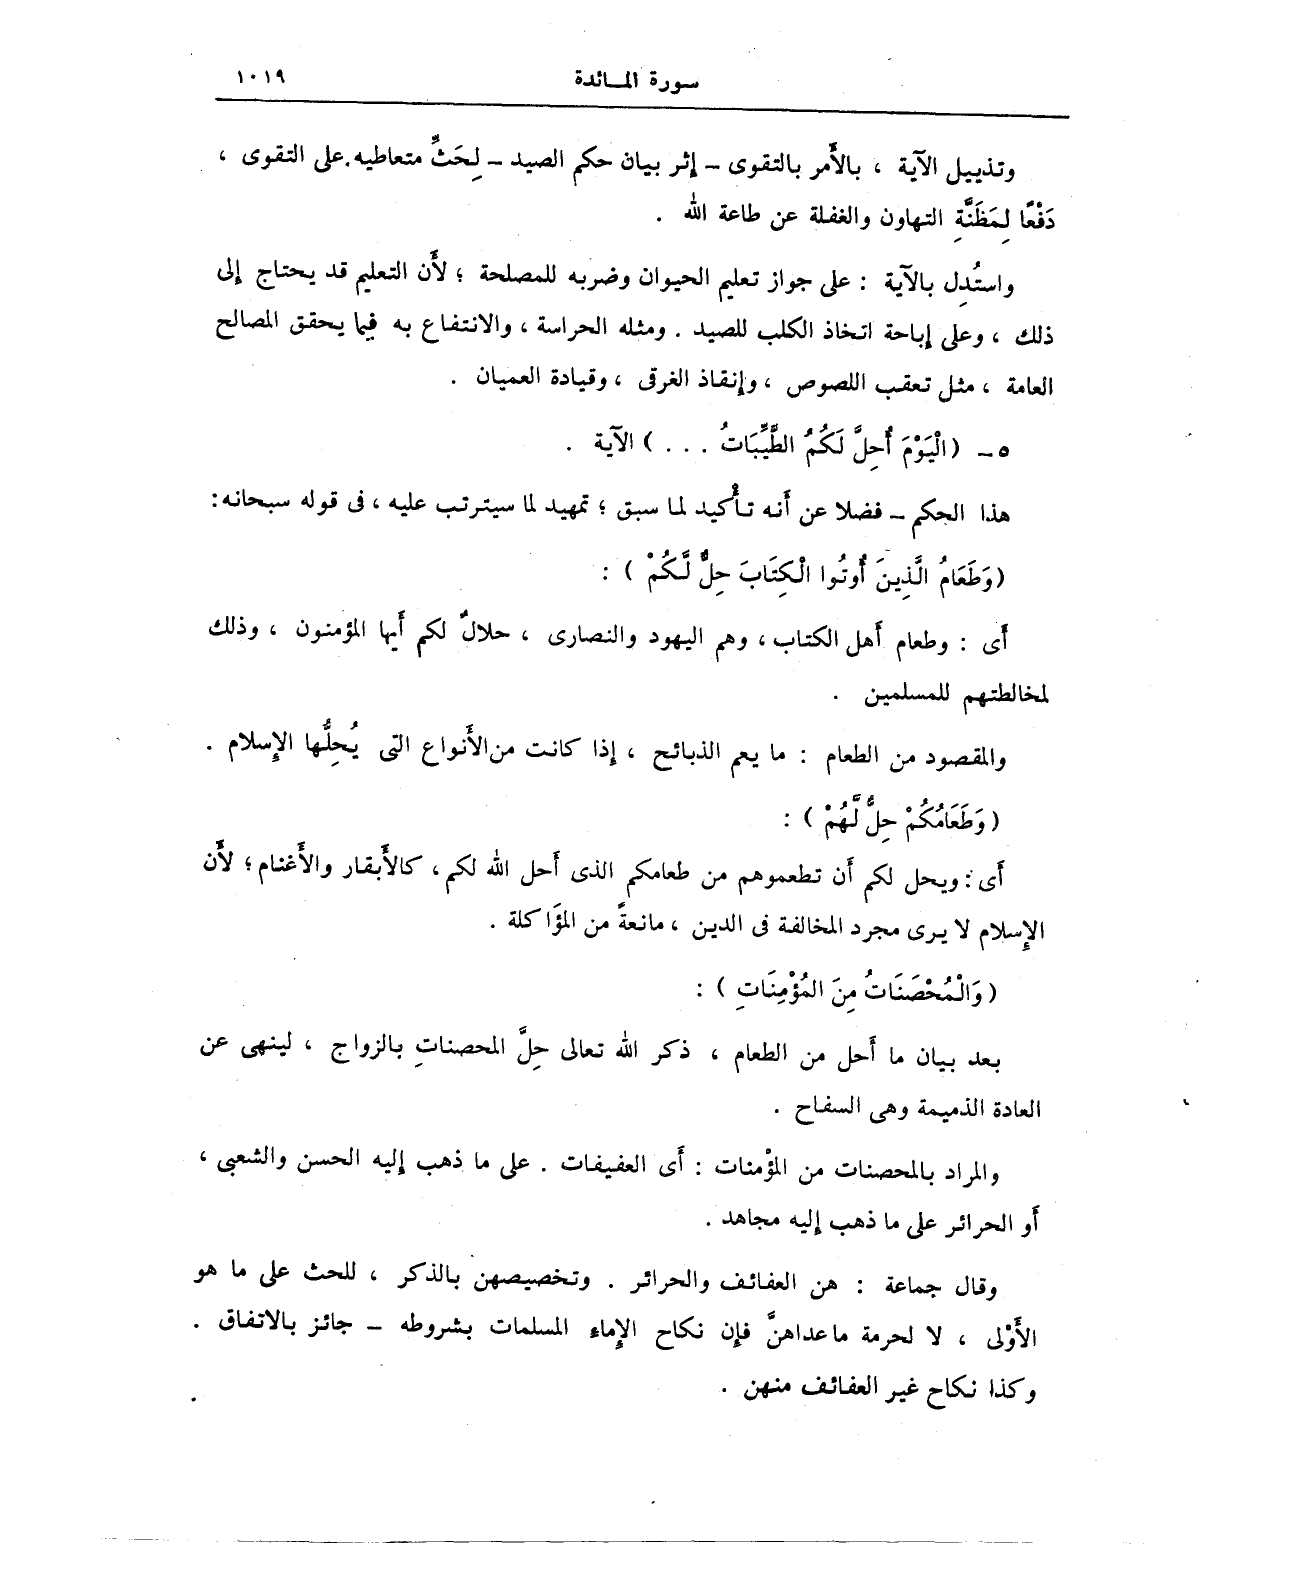 سورة المائدة ١٠١٩
وتذييل الآية ، بالأَمر بالتقوى – إثر بيان حكم الصيد – لِحَثِّ متعاطيه.على التقوى ،
دَفْعًا لِمَظَنَّةِ التهاون والغفلة عن طاعة الله .
واستُدِل بالآية : على جواز تعليم الحيوان وضربه للمصلحة ؛ لأَن التعليم قد يحتاج إلى
ذلك ، وعلى إباحة اتخاذ الكلب للصيد . ومثله الحراسة ، والانتفاع به فيما يحقق المصالح
العامة ، مثل تعقب اللصوص ، وإنقاذ الغرقى ، وقيادة العميان .
٥ – (الْيَوْمَ أُحِلَّ لَكُمُ الطَّيِّبَاتُ . . . ) الآية .
هذا الحكم – فضلا عن أَنه تأْكيد لما سبق ؛ تمهيد لما سيترتب عليه ، فى قوله سبحانه :
(وَطَعَامُ الَّذِينَ أُوتُوا الْكِتَابَ حِلٌّ لَّكُمْ ) :
أَى : وطعام أَهل الكتاب ، وهم اليهود والنصارى ، حلالٌ لكم أَيها المؤمنون ، وذلك
لمخالطتهم للمسلمين .
والمقصود من الطعام : ما يعم الذبائح ، إذا كانت من الأَنواع التى يُحِلُّها الإِسلام .
( وَطَعَامُكُمْ حِلٌّ لَّهُمْ ) :
أَى : ويحل لكم أَن تطعموهم من طعامكم الذى أَحل الله لكم ، كالأَبقار والأَغنام ؛ لأَن
الإِسلام لا يرى مجرد المخالفة فى الدين ، مانعةً من المؤَاكلة .
( وَالْمُحْصَنَاتُ مِنَ المُؤْمِنَاتِ ) :
بعد بيان ما أَحل من الطعام ، ذكر الله تعالى حِلَّ المحصناتِ بالزواج ، لينهى عن
العادة الذميمة وهى السفاح .
والمراد بالمحصنات من المؤْمنات : أَى العفيفات . على ما ذهب إليه الحسن والشعبى ،
أَو الحرائر على ما ذهب إليه مجاهد .
وقال جماعة : هن العفائف والحرائر . وتخصيصهن بالذكر ، للحث على ما هو
الأَوْلى ، لا لحرمة ماعداهنَّ فإن نكاح الإِماء المسلمات بشروطه – جائز بالاتفاق .
وكذا نكاح غير العفائف منهن .